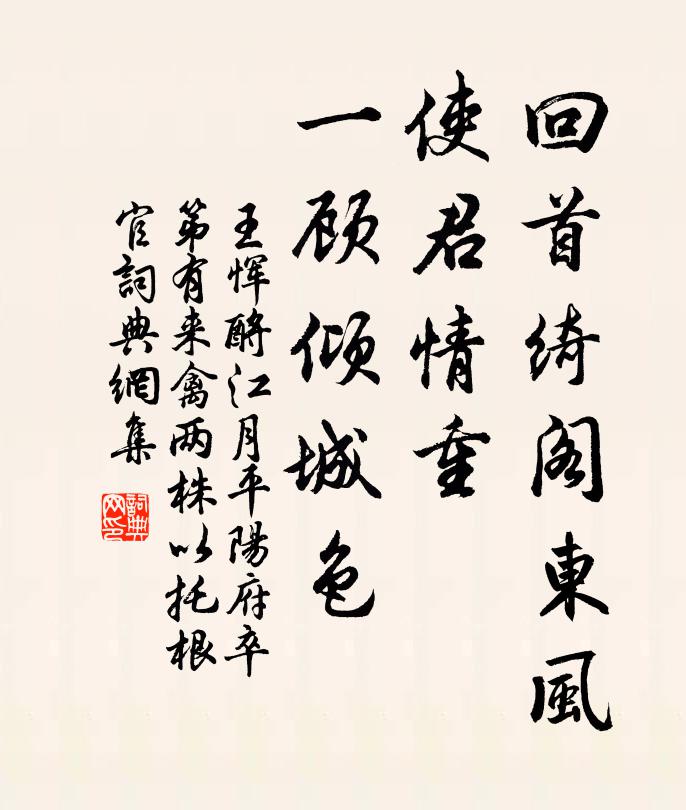 回首绮阁東風
使君情重
一顾倾城色
王恽酹江月平陽府卒
第有来禽两株以托根
官詞典網集
詞典网印